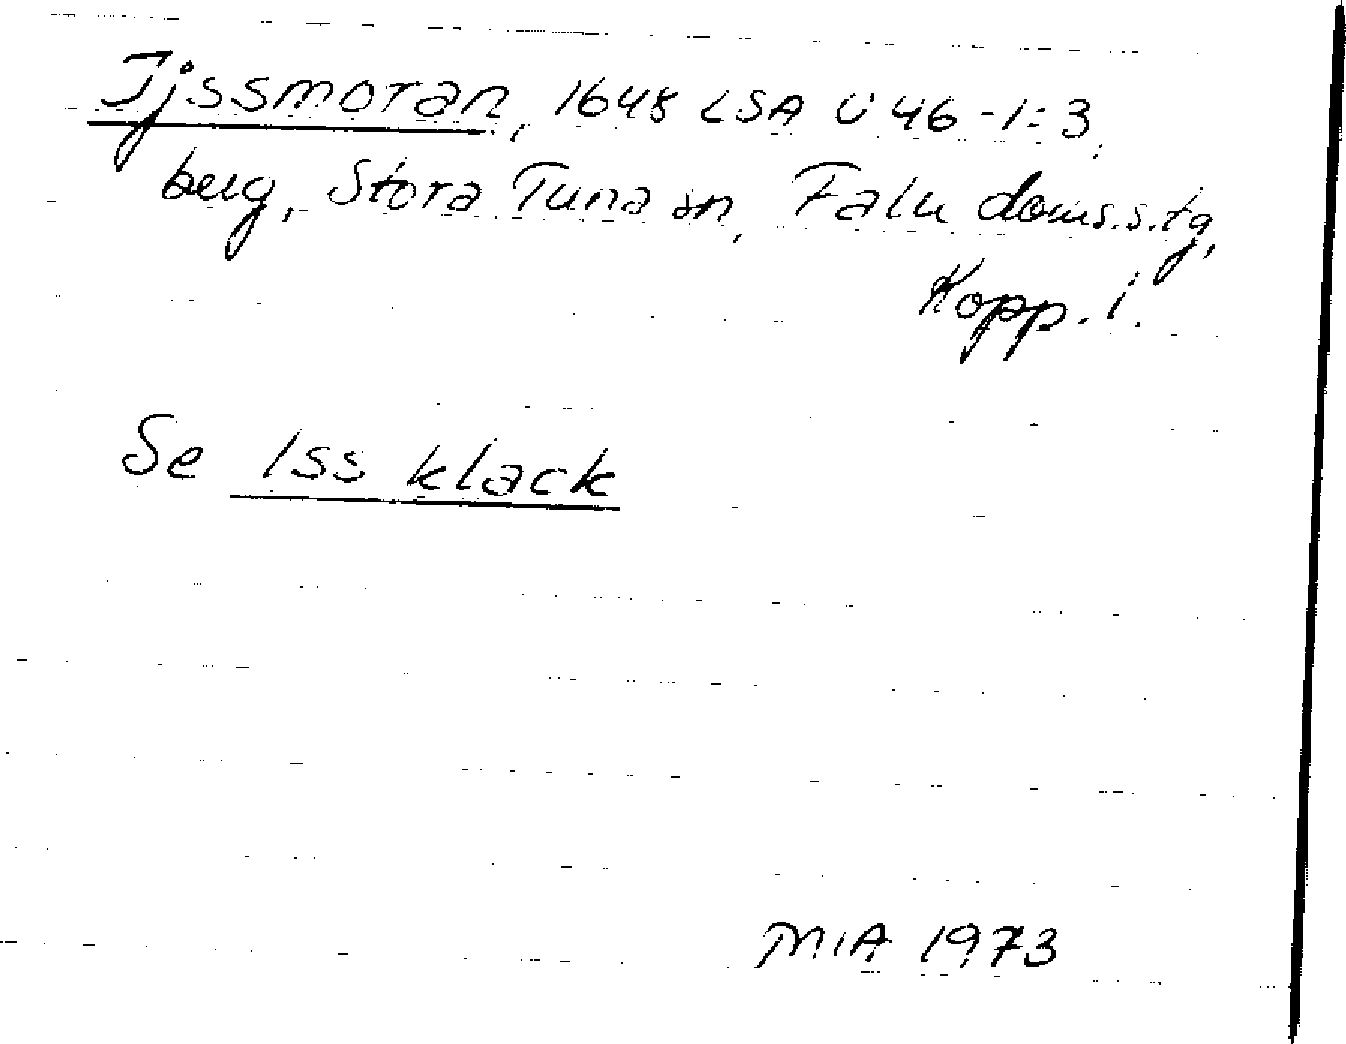 Ijssmoran, 1648 LSA U 46-1:3,
berg, Stora Tuna sn, Falu doms.s.tg,
Kopp. l.
Se Iss klack
MIA 1973